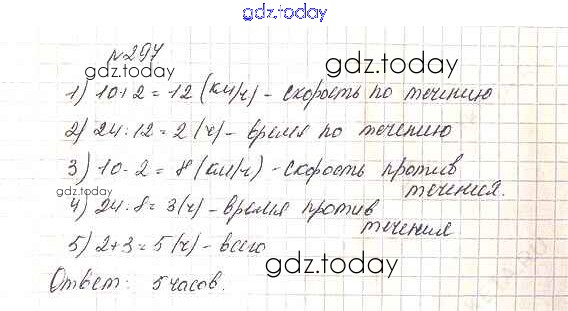 gdz.today
№297
gdz.today
gdz.today
1) 10+2=12 (км/ч) - скорость по течению
2) 24:12=2 (ч) - время по течению
3) 10-2=8 (км/ч) - скорость против
течения.
gdz.today
4) 24:8=3 (ч) - время против
течения
5) 2+3=5 (ч) - всего
gdz.today
Ответ: 5 часов.